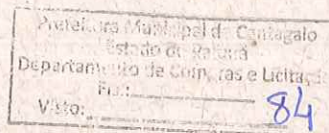 Prefeitura Municipal de Cantagalo
Estado do Paraná
Departamento de Compras e Licitação
Fls.:
84
Visto: